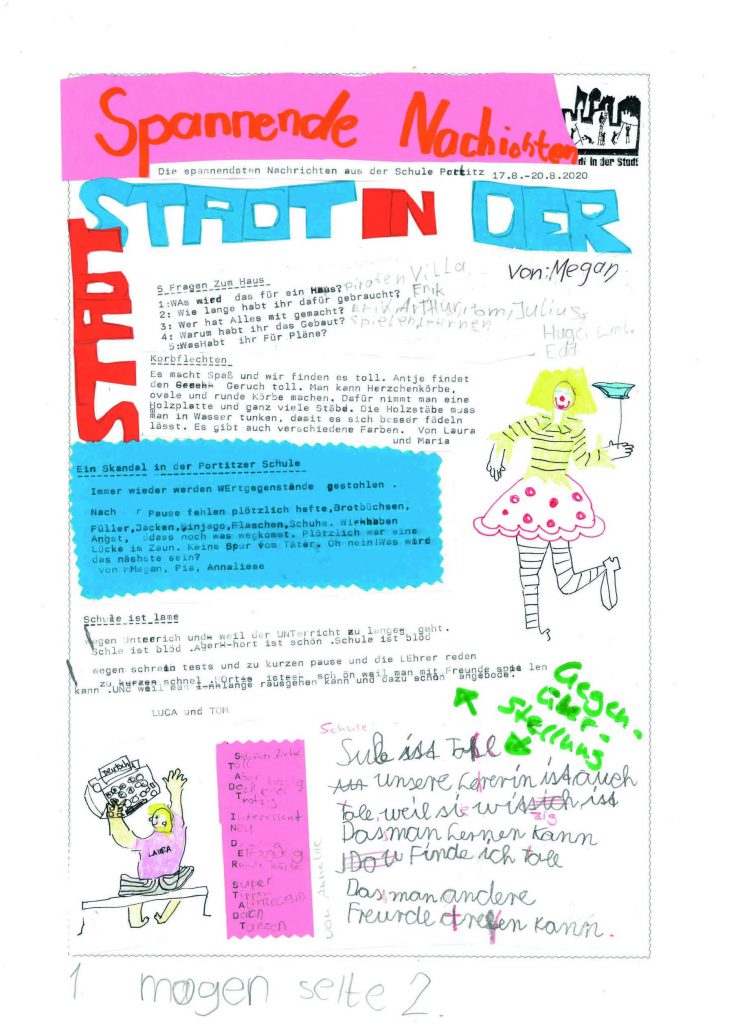 Spannende Nachichten
di in der Stadt
Die spannendsten Nachrichten aus der Schule Portitz 17.8.-20.8.2020
STADT IN DER
STADT
von: Megan
5 Fragen Zum Haus
1:WAs wird das für ein Haus? Piraten Villa
2: Wie lange habt ihr dafür gebraucht? Erik
3: Wer hat Alles mit gemacht? Erik, Arthur, Tom, Julius,
4: Warum habt ihr das Gebaut? Spielen, Lehrnen
Hugo, Emil,
5:WasHabt ihr Für Pläne?
Edd
Korbflechten
Es macht Spaß und wir finden es toll. Antje findet
den Geruch toll. Man kann Herzchenkörbe,
ovale und runde Körbe machen. Dafür nimmt man eine
Holzplatte und ganz viele Stäbe. Die Holzstäbe muss
man in Wasser tunken, damit es sich besser fädeln
lässt. Es gibt auch verschiedene Farben. Von Laura
und Maria
Ein Skandal in der Portitzer Schule
Immer wieder werden WErtgegenstände gestohlen .
Nach r Pause fehlen plötzlich hefte,Brotbüchsen,
Füller,Jacken,Ninjago,Flaschen,Schuhe. Wir haben
Angst, dass noch was wegkomt. Plötzlich war eine
Lücke im Zaun. Keine Spur vom Täter. Oh nein!Was wird
das nächste sein?
von Megan, Pia, Annaliese
Schule ist lame
wegen Unterrich und weil der UNTerricht zu langen geht.
Schle ist blöd .Aber hort ist schön .Schule ist blöd
wegen schrein tests und zu kurzen pause und die LEhrer reden
zu kurzen schnel .HOrt ist sch ön weil man mit Freunde spie len
kann .UNd weil man lange rausgehen kann und dazu schön angebode.
LUCA und TOM
Gegen-
über-
stellung
Deutsch
LAURA
Super
Tippen
AUFREGEND
Dach
Tanzen
Schule
Sule ist tolle
unsere Lehrerin ist auch
tole, weil sie witzig ist
Das man Lernen kann
Finde ich tolle
Das man andere
Freunde trefen kann.
1. mogen seite 2.